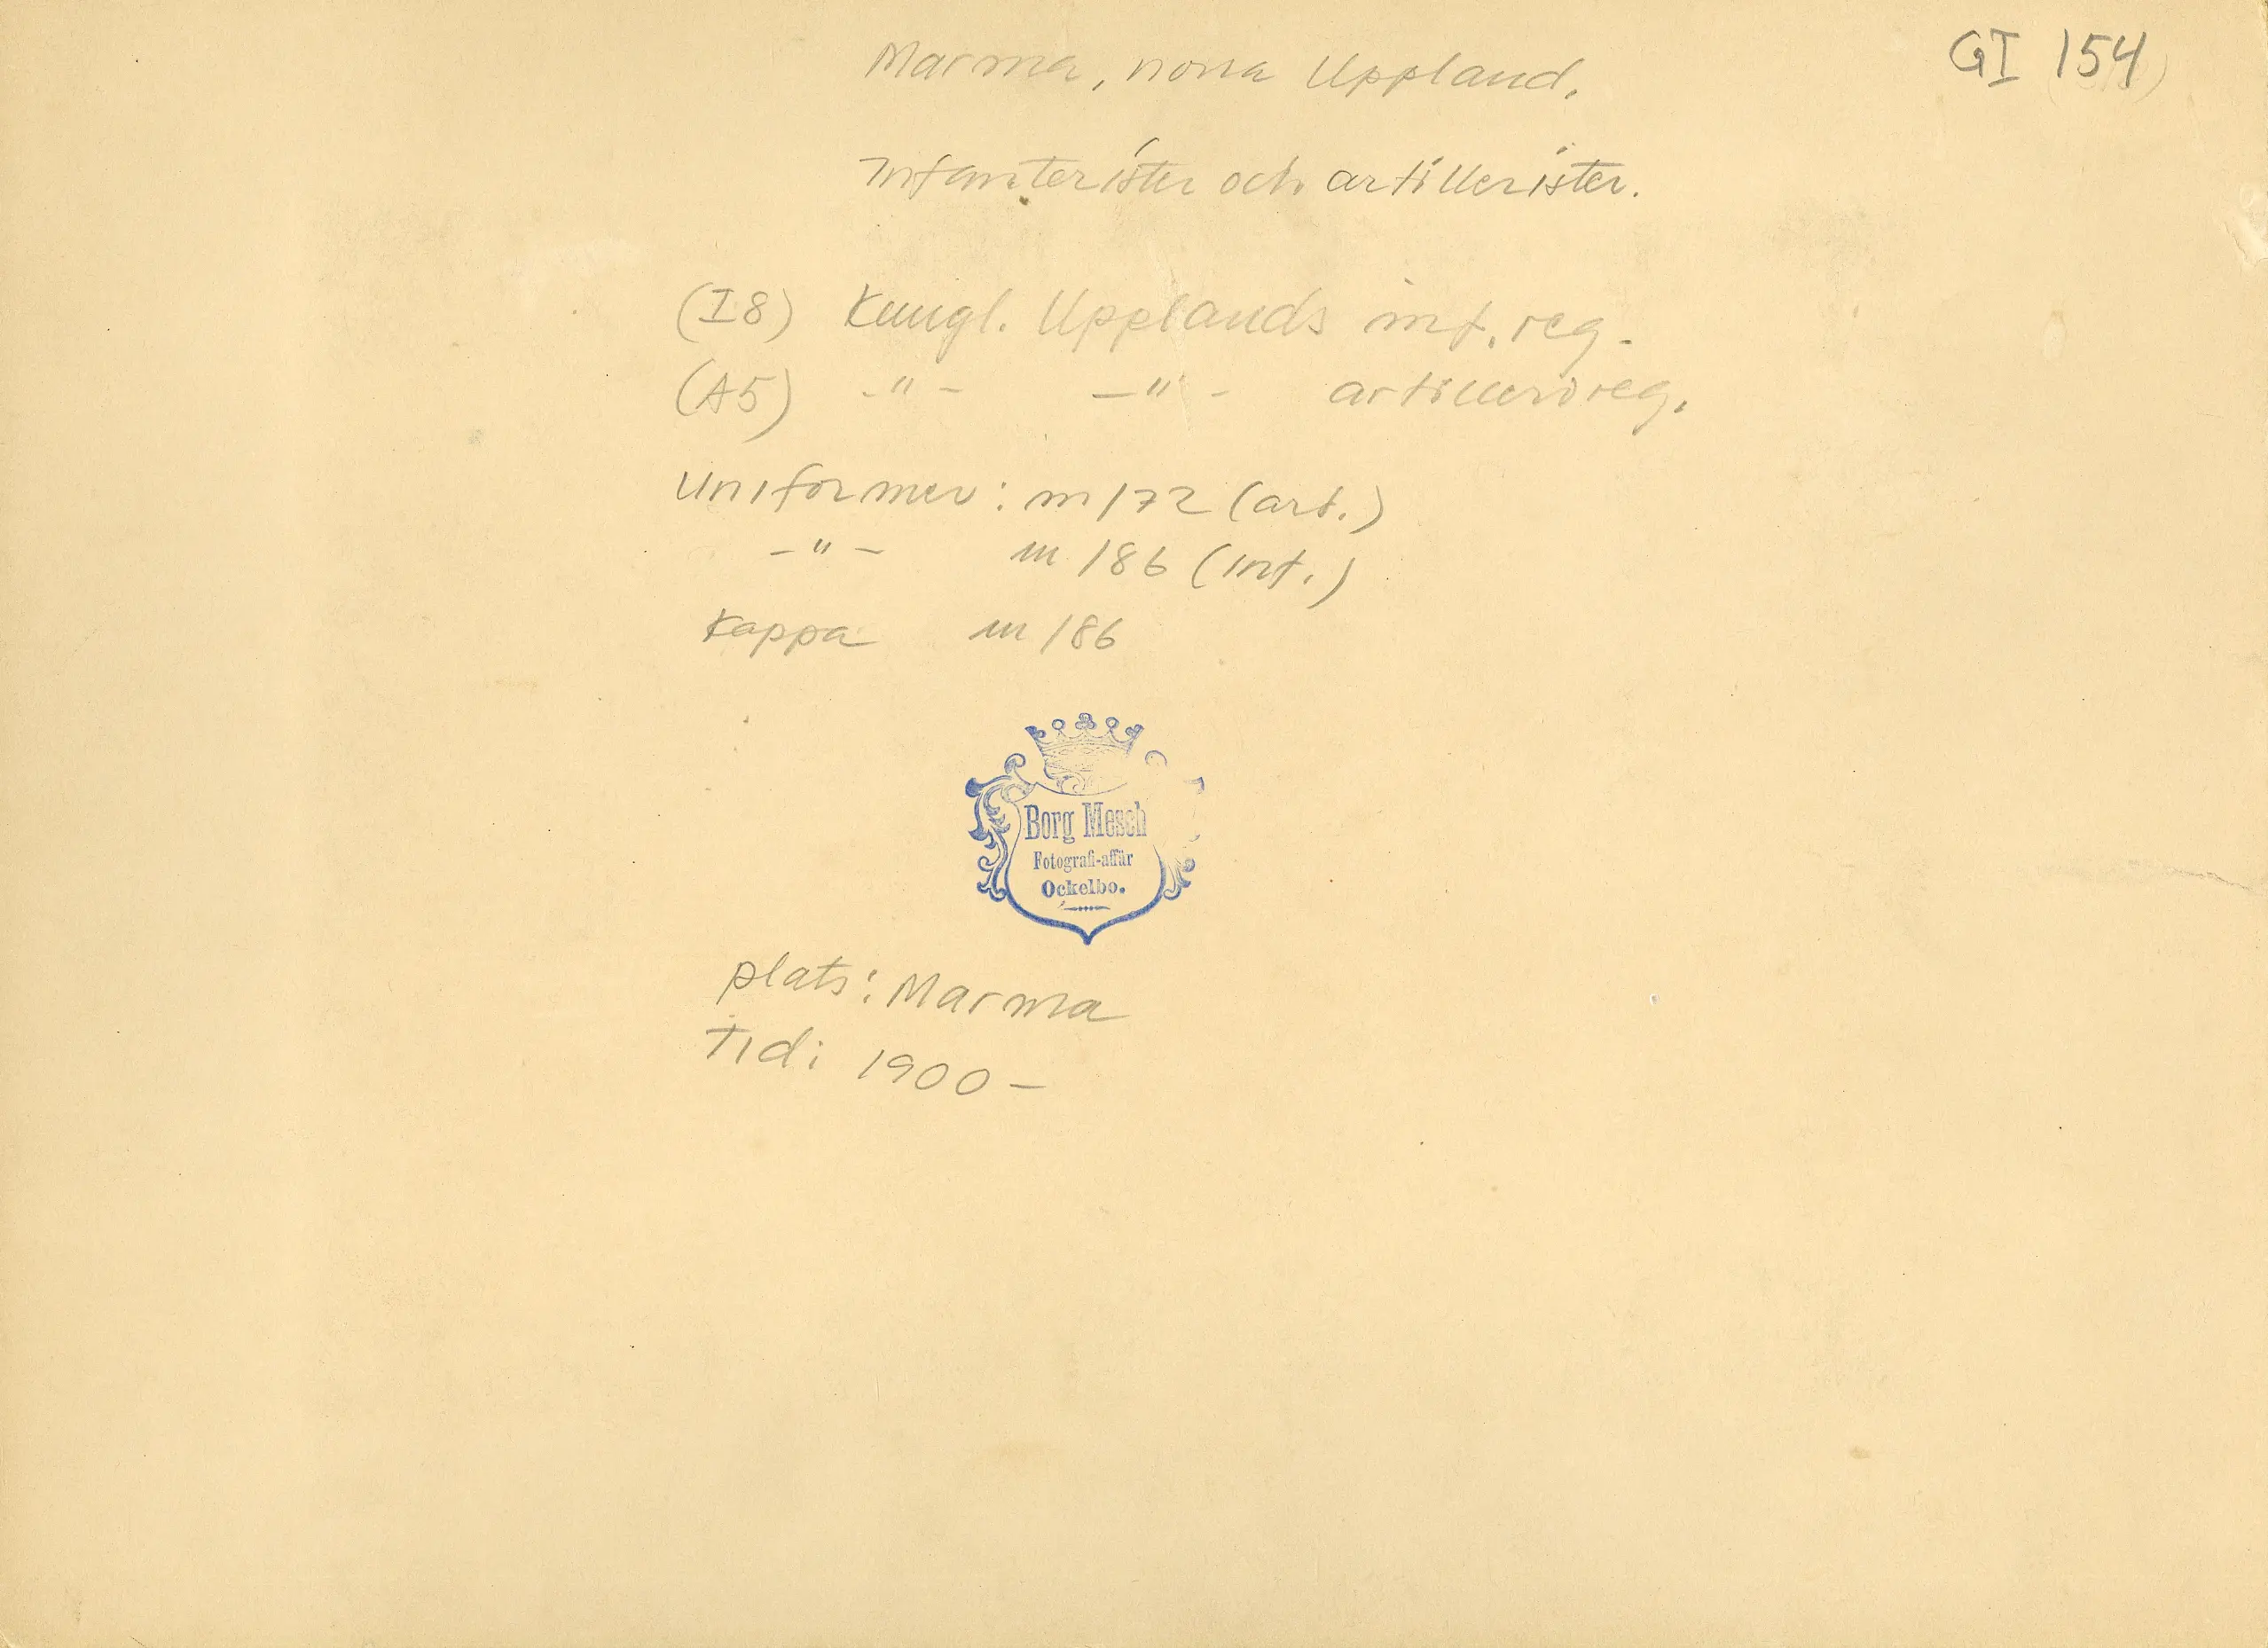 GI 154
Marma, norra Uppland.
Infanterister och artillerister.
(I8) Kungl. Upplands inf. reg.
(A5) -"- -"- artillerireg.
Uniformer: m/72 (art.)
-"- m/86 (inf.)
Kappa m/86
Borg Mesch
Fotografi-affär
Ockelbo.
plats: Marma
Tid: 1900-